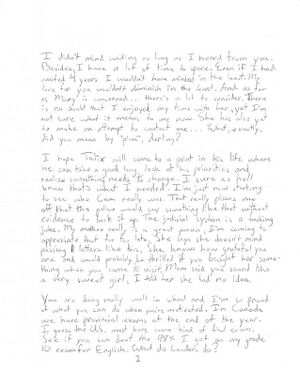 I didn't mind waiting as long as I heard from you.
Besides, I have a lot of time to spare. Even if I had
waited 4 years I wouldn't have minded in the least. My
love for you wouldn't diminish in the least. And as far
as Mary is concerned... there's a lot to consider. There
is no doubt that I enjoyed my time with her, yet I'm
not sure what it means to me now. She has also yet
to make an attempt to contact me... What, exactly,
did you mean by "plan", darling?
I hope will come to a point in his life where
he can take a good long look at his priorities, and
realize something needs to change. I sure as hell
know that's what I needed. I'm just now starting
to see who Cam really was. That really pisses me
off that this would say something like that without
evidence to back it up. The judicial system is a fucking
joke. My mother really is a great person, I'm coming to
appreciate that far too late. She says she doesn't mind
passing letters like this. She knows how grateful you
are and would probably be thrilled if you bought her some-
thing when you come to visit. Mom said you sound like
a very sweet girl, I told her she had no idea.
You are doing really well in school and I'm so proud
of what you can do when you're motivated. In Canada
we have provincial exams at the end of the year.
I guess the U.S. must have some kind of final exam.
See if you can beat the 98% I got on my grade
10 exam for English. What do leaders do?
2